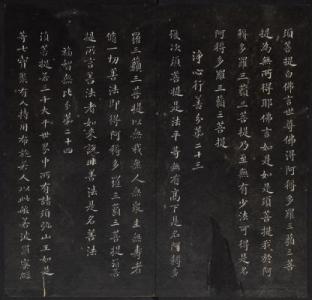 須菩提白佛言世尊佛得阿耨多羅三藐三菩
提為無所得耶佛言如是如是須菩提我於阿
耨多羅三藐三菩提乃至無有少法可得是名
阿耨多羅三藐三菩提
淨心行善分第二十三
復次須菩提是法平等無有高下是名阿耨多
羅三藐三菩提以無我無人無眾生無壽者
修一切善法即得阿耨多羅三藐三菩提須菩
提所言善法者如來說非善法是名善法
福智無比分第二十四
須菩提若三千大千世界中所有諸須彌山王如是
等七寶聚有人持用布施若人以此般若波羅蜜經